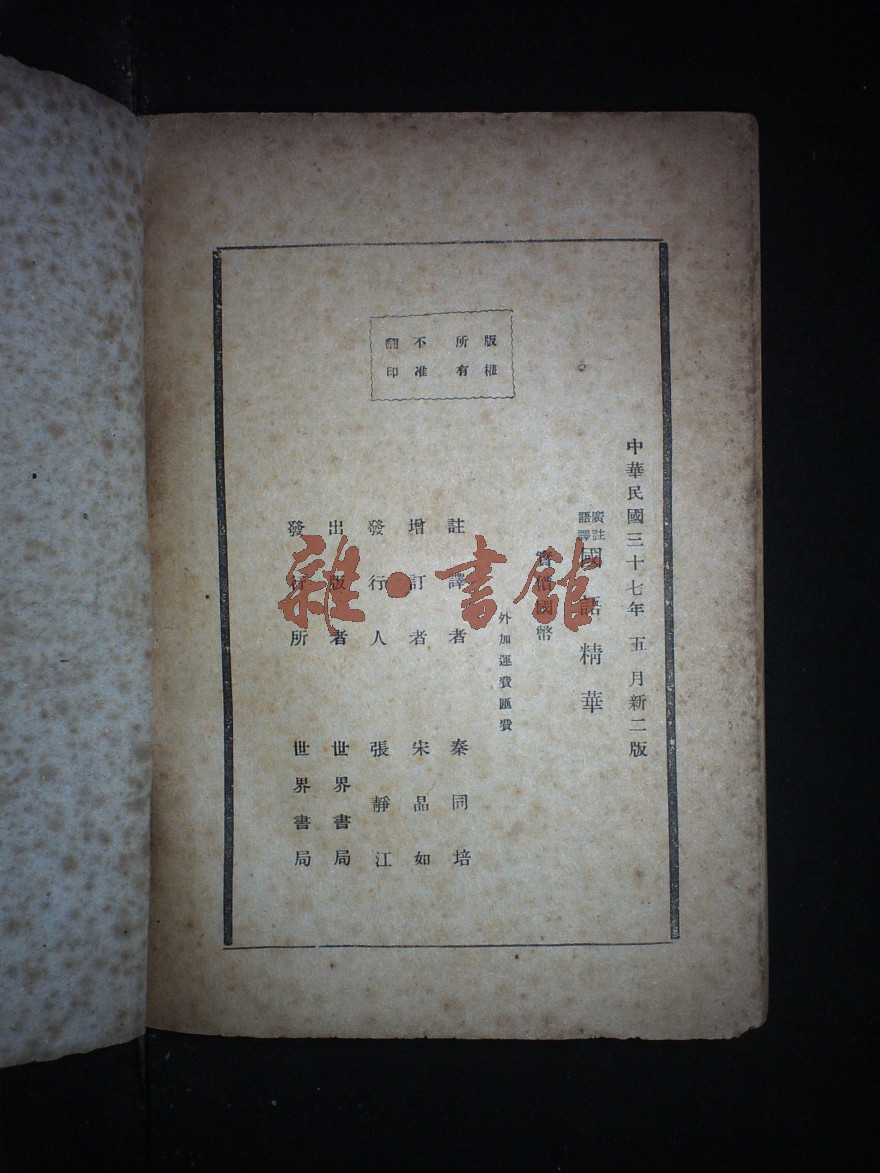 中華民國三十七年五月新二版
廣註
語譯
國語精華
實價國幣
外加運費匯費
註譯者 秦同培
增訂者 宋晶如
發行人 張靜江
出版者 世界書局
發行所 世界書局
版權
所有
不准
翻印
雜·書館